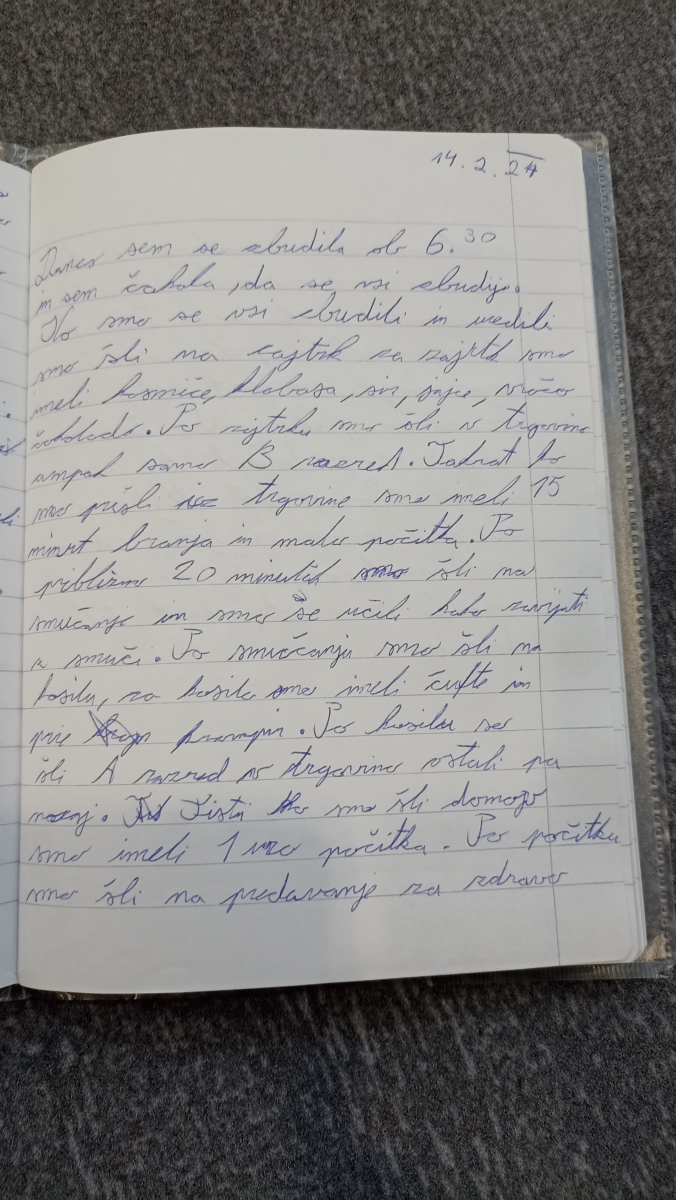 14. 2. 24
Danes sem se zbudila ob 6.30
in sem čakala, da se vsi zbudijo.
Ko smo se vsi zbudili in uredili
smo šli na zajtrk za zajtrk smo
imeli kosmiče, klobasa, sir, jajce, vročo
čokolado. Po zajtrku smo šli v trgovino
ampak samo B razred. Takrat ko
smo prišli iz trgovine smo imeli 15
minut branja in malo počitka. Po
približno 20 minutah smo šli na
smučanje in smo se učili kako zavijati
s smuči. Po smučanju smo šli na
kosilu, za kosilo smo imeli čufte in
pire krompir. Po kosilu so
šli A razred v trgovino ostali pa
nazaj. Tisti ko smo šli domov
smo imeli 1 uro počitka. Po počitku
smo šli na predavanje za zdravo